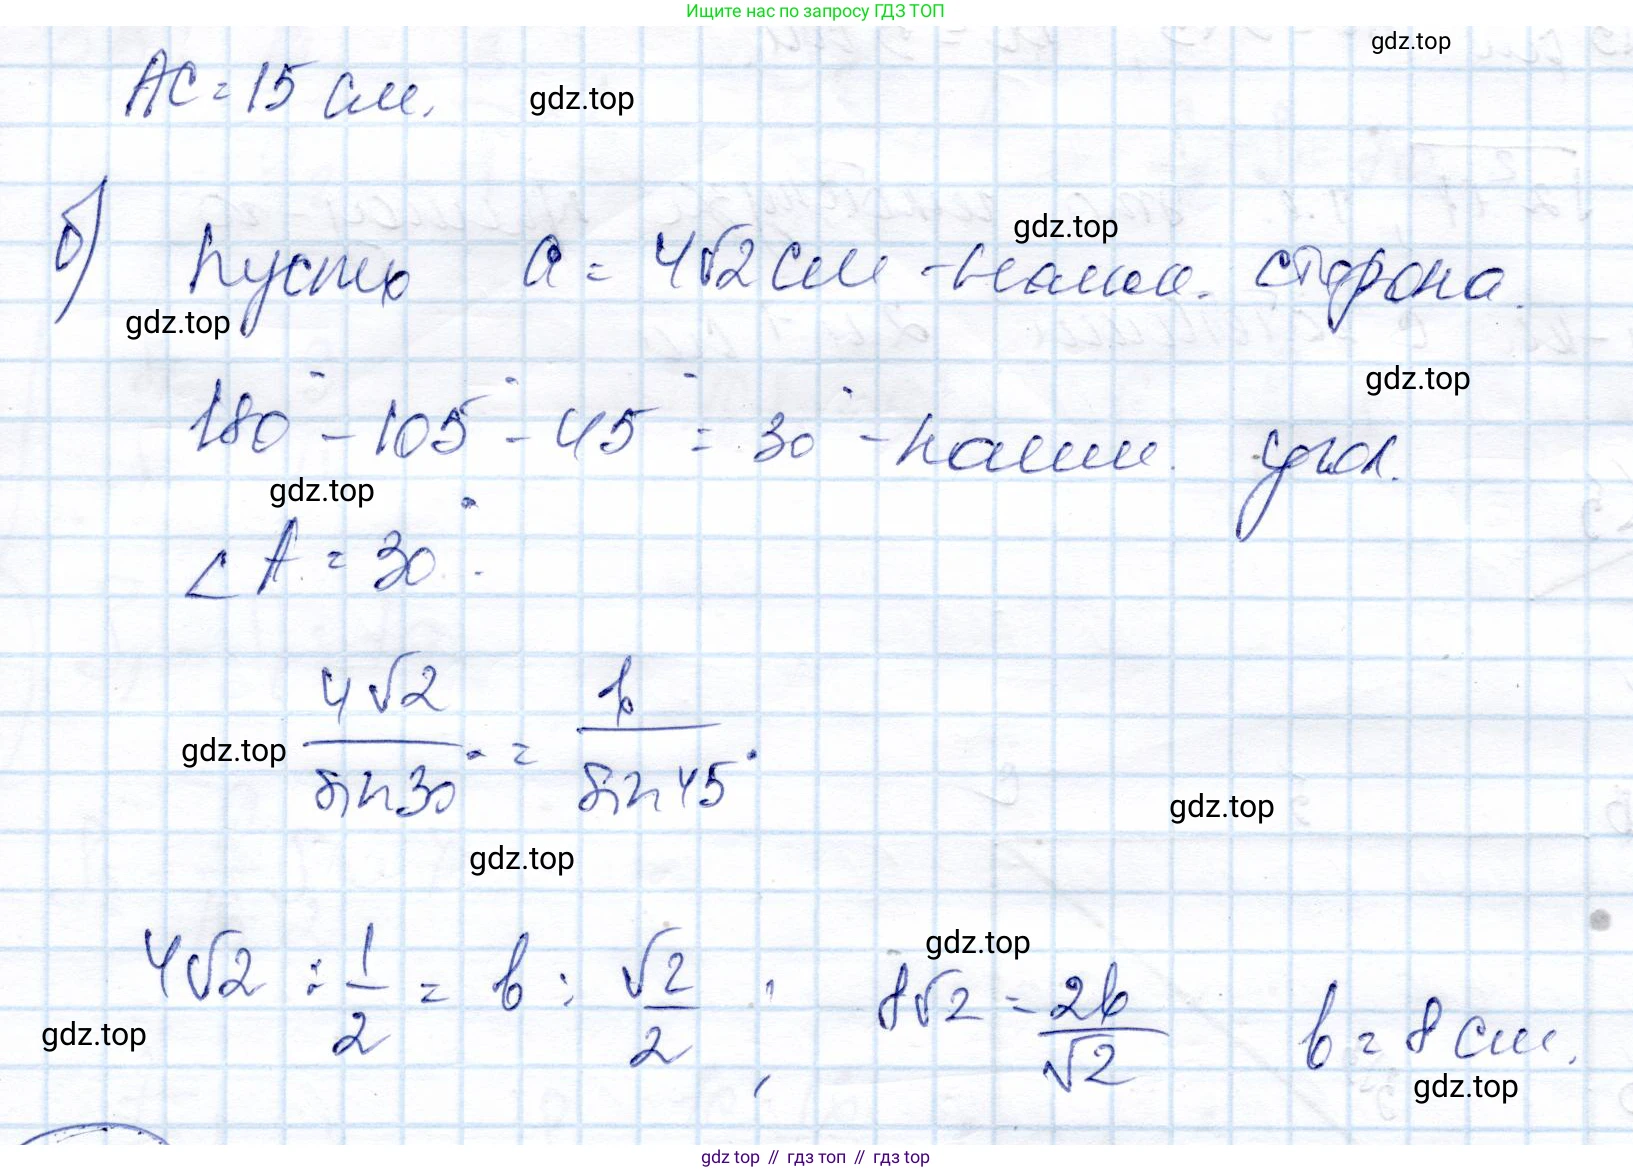 Ищите нас по запросу ГДЗ ТОП
gdz.top
AC = 15 см.
gdz.top
б) Пусть a = 4√2 см - наим. сторона.
gdz.top
gdz.top
180° - 105° - 45° = 30° - наим. угол.
gdz.top
gdz.top
∠A = 30°.
4√2/sin30° = b/sin45°
gdz.top
gdz.top
gdz.top
4√2 : 1/2 = b : √2/2 ; 8√2 = 2b/√2 b = 8 см.
gdz.top
gdz.top
gdz.top
gdz top // гдз топ // гдз top